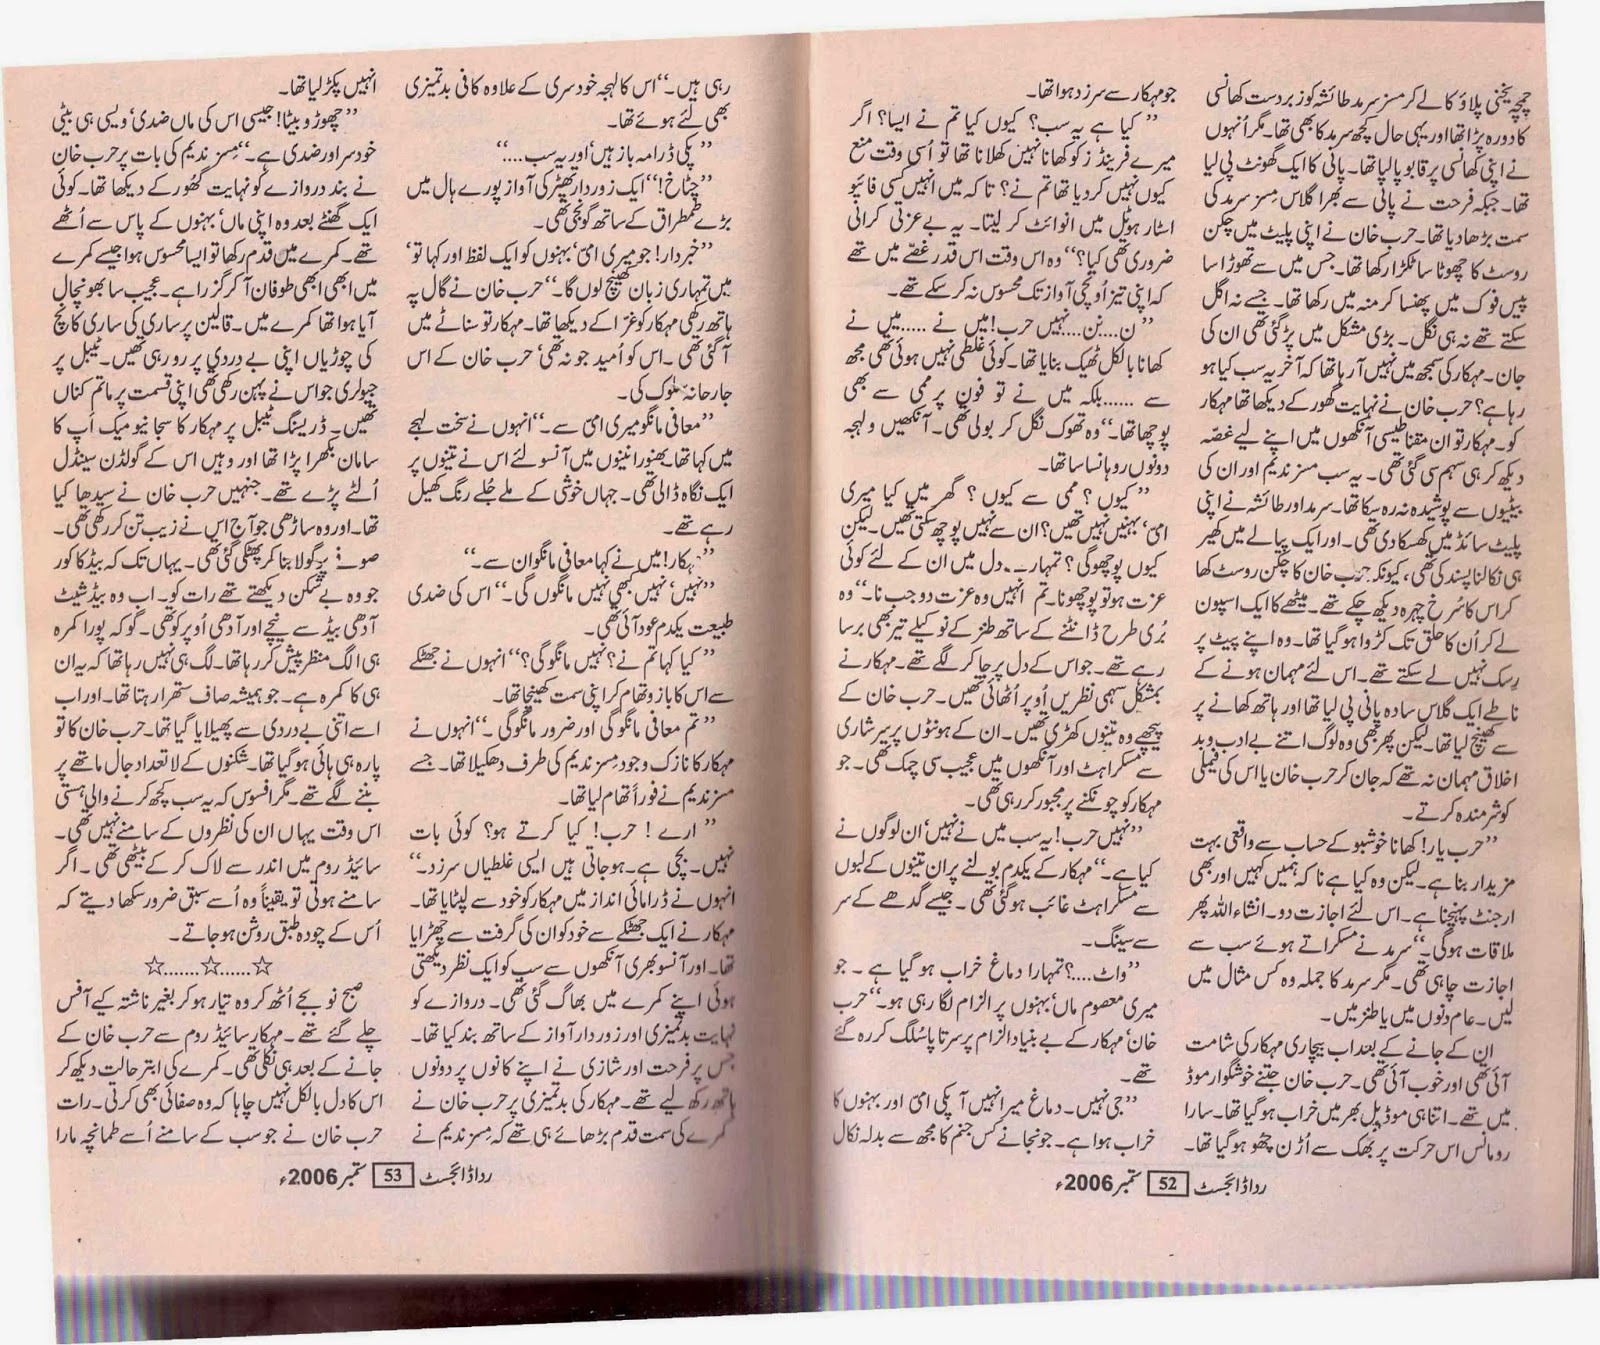 چمچہ یخنی پلاؤ کا لے کر مسز سرمد طائشہ کو زبردست کھانسی
کا دورہ پڑا تھا اور یہی حال کچھ سرمد کا بھی تھا۔ مگر اُنہوں
نے اپنی کھانسی پر قابو پا لیا تھا۔ پانی کا ایک گھونٹ پی لیا
تھا۔ جبکہ فرحت نے پانی سے بھرا گلاس مسز سرمد کی
سمت بڑھا دیا تھا۔ حرب خان نے اپنی پلیٹ میں چکن
روسٹ کا چھوٹا سا ٹکڑا رکھا تھا۔ جس میں سے تھوڑا سا
پیس فوک میں پھنسا کر منہ میں رکھا تھا۔ جسے نہ اگل
سکتے تھے نہ ہی نگل۔ بڑی مشکل میں پڑ گئی تھی ان کی
جان۔ مہکار کی سمجھ میں نہیں آ رہا تھا کہ آخر یہ سب کیا ہو
رہا ہے؟ حرب خان نے نہایت گھور کے دیکھا تھا مہکار
کو۔ مہکار تو ان مقناطیسی آنکھوں میں اپنے لیے غصّہ
دیکھ کر ہی سہم سی گئی تھی۔ یہ سب مسز ندیم اور ان کی
بیٹیوں سے پوشیدہ نہ رہ سکا تھا۔ سرمد اور طائشہ نے اپنی
پلیٹ سائڈ میں کھسکا دی تھی۔ اور ایک پیالے میں کھیر
ہی نکالنا پسند کی تھی، کیونکہ حرب خان کا چکن روسٹ کھا
کر اس کا سُرخ چہرہ دیکھ چکے تھے۔ میٹھے کا ایک اسپون
لے کر اُن کا حلق تک کڑوا ہو گیا تھا۔ وہ اپنے پیٹ پر
رِسک نہیں لے سکتے تھے۔ اس لئے مہمان ہونے کے
ناطے ایک گلاس سادہ پانی پی لیا تھا اور ہاتھ کھانے پر
سے کھینچ لیا تھا۔ لیکن پھر بھی وہ لوگ اتنے بے ادب و بد
اخلاق مہمان نہ تھے کہ جان کر حرب خان یا اس کی فیملی
کو شرمندہ کرتے۔
’’حرب یار! کھانا خوشبو کے حساب سے واقعی بہت
مزیدار بنا ہے۔ لیکن وہ کیا ہے نا کہ ہمیں کہیں اور بھی
ارجنٹ پہنچنا ہے۔ اس لئے اجازت دو۔ انشاء اللہ پھر
ملاقات ہوگی۔‘‘ سرمد نے مسکراتے ہوئے سب سے
اجازت چاہی تھی۔ مگر سرمد کا جملہ وہ کس مثال میں
لیں۔ عام دنوں میں یا طنز میں۔
ان کے جانے کے بعد اب بیچاری مہکار کی شامت
آئی تھی اور خوب آئی تھی۔ حرب خان جتنے خوشگوار موڈ
میں تھے۔ اتنا ہی موڈ پل بھر میں خراب ہو گیا تھا۔ سارا
رومانس اس حرکت پر بھک سے اُڑن چھو ہو گیا تھا۔
جو مہکار سے سرزد ہوا تھا۔
’’کیا ہے یہ سب؟ کیوں کیا تم نے ایسا؟ اگر
میرے فرینڈز کو کھانا نہیں کھلانا تھا تو اُسی وقت منع
کیوں نہیں کر دیا تھا تم نے؟ تاکہ میں انہیں کسی فائیو
اسٹار ہوٹل میں انوائٹ کر لیتا۔ یہ بے عزتی کرانی
ضروری تھی کیا؟‘‘ وہ اس وقت اس قدر غصّے میں تھے
کہ اپنی تیز اُونچی آواز تک محسوس نہ کر سکے تھے۔
’’ن...نن...نہیں حرب! میں نے ..... میں نے
کھانا بالکل ٹھیک بنایا تھا۔ کوئی غلطی نہیں ہوئی تھی مجھ
سے ...... بلکہ میں نے تو فون پر ممی سے بھی
پوچھا تھا۔‘‘ وہ تھوک نگل کر بولی تھی۔ آنکھیں و لہجہ
دونوں روہانسا سا تھا۔
’’کیوں؟ ممی سے کیوں؟ گھر میں کیا میری
امی‘ بہنیں نہیں تھیں؟ ان سے نہیں پوچھ سکتی تھیں۔ لیکن
کیوں پوچھوگی؟ تمہار... دل میں ان کے لئے کوئی
عزت ہو تو پوچھونا۔ تم انہیں وہ عزت دو جب نا۔‘‘ وہ
بُری طرح ڈانٹنے کے ساتھ طنز کے نوکیلے تیر بھی برسا
رہے تھے۔ جو اس کے دل پر جا کر لگے تھے۔ مہکار نے
بمشکل سہمی نظریں اُوپر اُٹھائی تھیں۔ حرب خان کے
پیچھے وہ تینوں کھڑی تھیں۔ ان کے ہونٹوں پر سرشاری
سے مسکراہٹ اور آنکھوں میں عجیب سی چمک تھی۔ جو
مہکار کو چونکنے پر مجبور کر رہی تھی۔
’’نہیں حرب! یہ سب میں نے نہیں‘ ان لوگوں نے
کیا ہے۔‘‘ مہکار کے یکدم بولنے پر ان تینوں کے لبوں
سے مسکراہٹ غائب ہو گئی تھی۔ جیسے گدھے کے سر
سے سینگ۔
’’واٹ....؟ تمہارا دماغ خراب ہو گیا ہے۔ جو
میری معصوم ماں‘ بہنوں پر الزام لگا رہی ہو۔‘‘ حرب
خان‘ مہکار کے بے بنیاد الزام پر سرتا پا سُلگ کر رہ گئے
تھے۔
’’جی نہیں۔ دماغ میرا نہیں آپکی امی اور بہنوں کا
خراب ہوا ہے۔ جو نجانے کس جنم کا مجھ سے بدلہ نکال
رداڈائجسٹ 52 ستمبر 2006ء
رہی ہیں۔‘‘ اس کا لہجہ خود سری کے علاوہ کافی بدتمیزی
بھی لئے ہوئے تھا۔
’’پکی ڈرامہ باز ہیں‘ اور یہ سب....‘‘
’’چٹاخ!‘‘ ایک زور دار تھپڑ کی آواز پورے ہال میں
بڑے طمطراق کے ساتھ گونجی تھی۔
’’خبردار! جو میری امی‘ بہنوں کو ایک لفظ اور کہا تو‘
میں تمہاری زبان کھینچ لوں گا۔‘‘ حرب خان نے گال پہ
ہاتھ رکھی مہکار کو غرّا کے دیکھا تھا۔ مہکار تو سناٹے میں
آ گئی تھی۔ اس کو اُمید جو نہ تھی‘ حرب خان کے اس
جارحانہ سُلوک کی۔
’’معافی مانگو میری امی سے۔‘‘ انہوں نے سخت لہجے
میں کہا تھا۔ بھنورا نینوں میں آنسو لئے اس نے تینوں پر
ایک نگاہ ڈالی تھی۔ جہاں خوشی کے ملے جُلے رنگ کھیل
رہے تھے۔
’’مہکار! میں نے کہا معافی مانگو ان سے۔‘‘
’’نہیں‘ نہیں کبھی نہیں مانگوں گی۔‘‘ اس کی ضدی
طبیعت یکدم عود آئی تھی۔
’’کیا کہا تم نے؟ نہیں مانگوگی؟‘‘ انہوں نے جھٹکے
سے اس کا بازو تھام کر اپنی سمت کھینچا تھا۔
’’تم معافی مانگوگی اور ضرور مانگوگی۔‘‘ انہوں نے
مہکار کا نازک وجود مسز ندیم کی طرف دھکیلا تھا۔ جسے
مسز ندیم نے فوراً تھام لیا تھا۔
’’ارے! حرب! کیا کرتے ہو؟ کوئی بات
نہیں۔ بچی ہے۔ ہو جاتی ہیں ایسی غلطیاں سرزد۔‘‘
انہوں نے ڈرامائی انداز میں مہکار کو خود سے لپٹایا تھا۔
مہکار نے ایک جھٹکے سے خود کو ان کی گرفت سے چھڑایا
تھا۔ اور آنسو بھری آنکھوں سے سب کو ایک نظر دیکھتی
ہوئی اپنے کمرے میں بھاگ گئی تھی۔ دروازے کو
نہایت بدتمیزی اور زور دار آواز کے ساتھ بند کیا تھا۔
جس پر فرحت اور شازی نے اپنے کانوں پر دونوں
ہاتھ رکھ لیے تھے۔ مہکار کی بدتمیزی پر حرب خان نے
کمرے کی سمت قدم بڑھائے ہی تھے کہ مسز ندیم نے
انہیں پکڑ لیا تھا۔
’’چھوڑو بیٹا! جیسی اس کی ماں ضدی‘ ویسی ہی بیٹی
خود سر اور ضدی ہے۔‘‘ مسز ندیم کی بات پر حرب خان
نے بند دروازے کو نہایت گھُور کے دیکھا تھا۔ کوئی
ایک گھنٹے بعد وہ اپنی ماں‘ بہنوں کے پاس سے اُٹھے
تھے۔ کمرے میں قدم رکھا تو ایسا محسوس ہوا جیسے کمرے
میں ابھی ابھی طوفان آ کر گزرا ہے۔ عجیب سا بھونچال
آیا ہوا تھا کمرے میں۔ قالین پر ساری کی ساری کانچ
کی چوڑیاں اپنی بے دردی پر رو رہی تھیں۔ ٹیبل پر
جیولری جو اس نے پہن رکھی تھی اپنی قسمت پر ماتم کناں
تھیں۔ ڈریسنگ ٹیبل پر مہکار کا سجا نیو میک اَپ کا
سامان بکھرا پڑا تھا اور وہیں اس کے گولڈن سینڈل
اُلٹے پڑے تھے۔ جنہیں حرب خان نے سیدھا کیا
تھا۔ اور وہ ساڑھی جو آج اس نے زیب تن کر رکھی تھی۔
صوفے پر گولا بنا کر پھینکی گئی تھی۔ یہاں تک کہ بیڈ کا کور
جو وہ بے شکن دیکھتے تھے رات کو۔ اب وہ بیڈ شیٹ
آدھی بیڈ سے نیچے اور آدھی اُوپر کو تھی۔ گو کہ پورا کمرہ
ہی الگ منظر پیش کر رہا تھا۔ لگ ہی نہیں رہا تھا کہ یہ ان
ہی کا کمرہ ہے۔ جو ہمیشہ صاف ستھرا رہتا تھا۔ اور اب
اسے اتنی بے دردی سے پھیلایا گیا تھا۔ حرب خان کا تو
پارہ ہی ہائی ہو گیا تھا۔ شکنوں کے لاتعداد جال ماتھے پر
بننے لگے تھے۔ مگر افسوس کہ یہ سب کچھ کرنے والی ہستی
اس وقت یہاں ان کی نظروں کے سامنے نہیں تھی۔
سائیڈ روم میں اندر سے لاک کر کے بیٹھی تھی۔ اگر
سامنے ہوتی تو یقیناً وہ اُسے سبق ضرور سکھا دیتے کہ
اُس کے چودہ طبق روشن ہو جاتے۔
☆......☆......☆
صبح نو بجے اُٹھ کر وہ تیار ہو کر بغیر ناشتہ کیے آفس
چلے گئے تھے۔ مہکار سائیڈ روم سے حرب خان کے
جانے کے بعد ہی نکلی تھی۔ کمرے کی ابتر حالت دیکھ کر
اس کا دل بالکل نہیں چاہا کہ وہ صفائی بھی کرتی۔ رات
حرب خان نے جو سب کے سامنے اُسے طمانچہ مارا
رداڈائجسٹ 53 ستمبر 2006ء